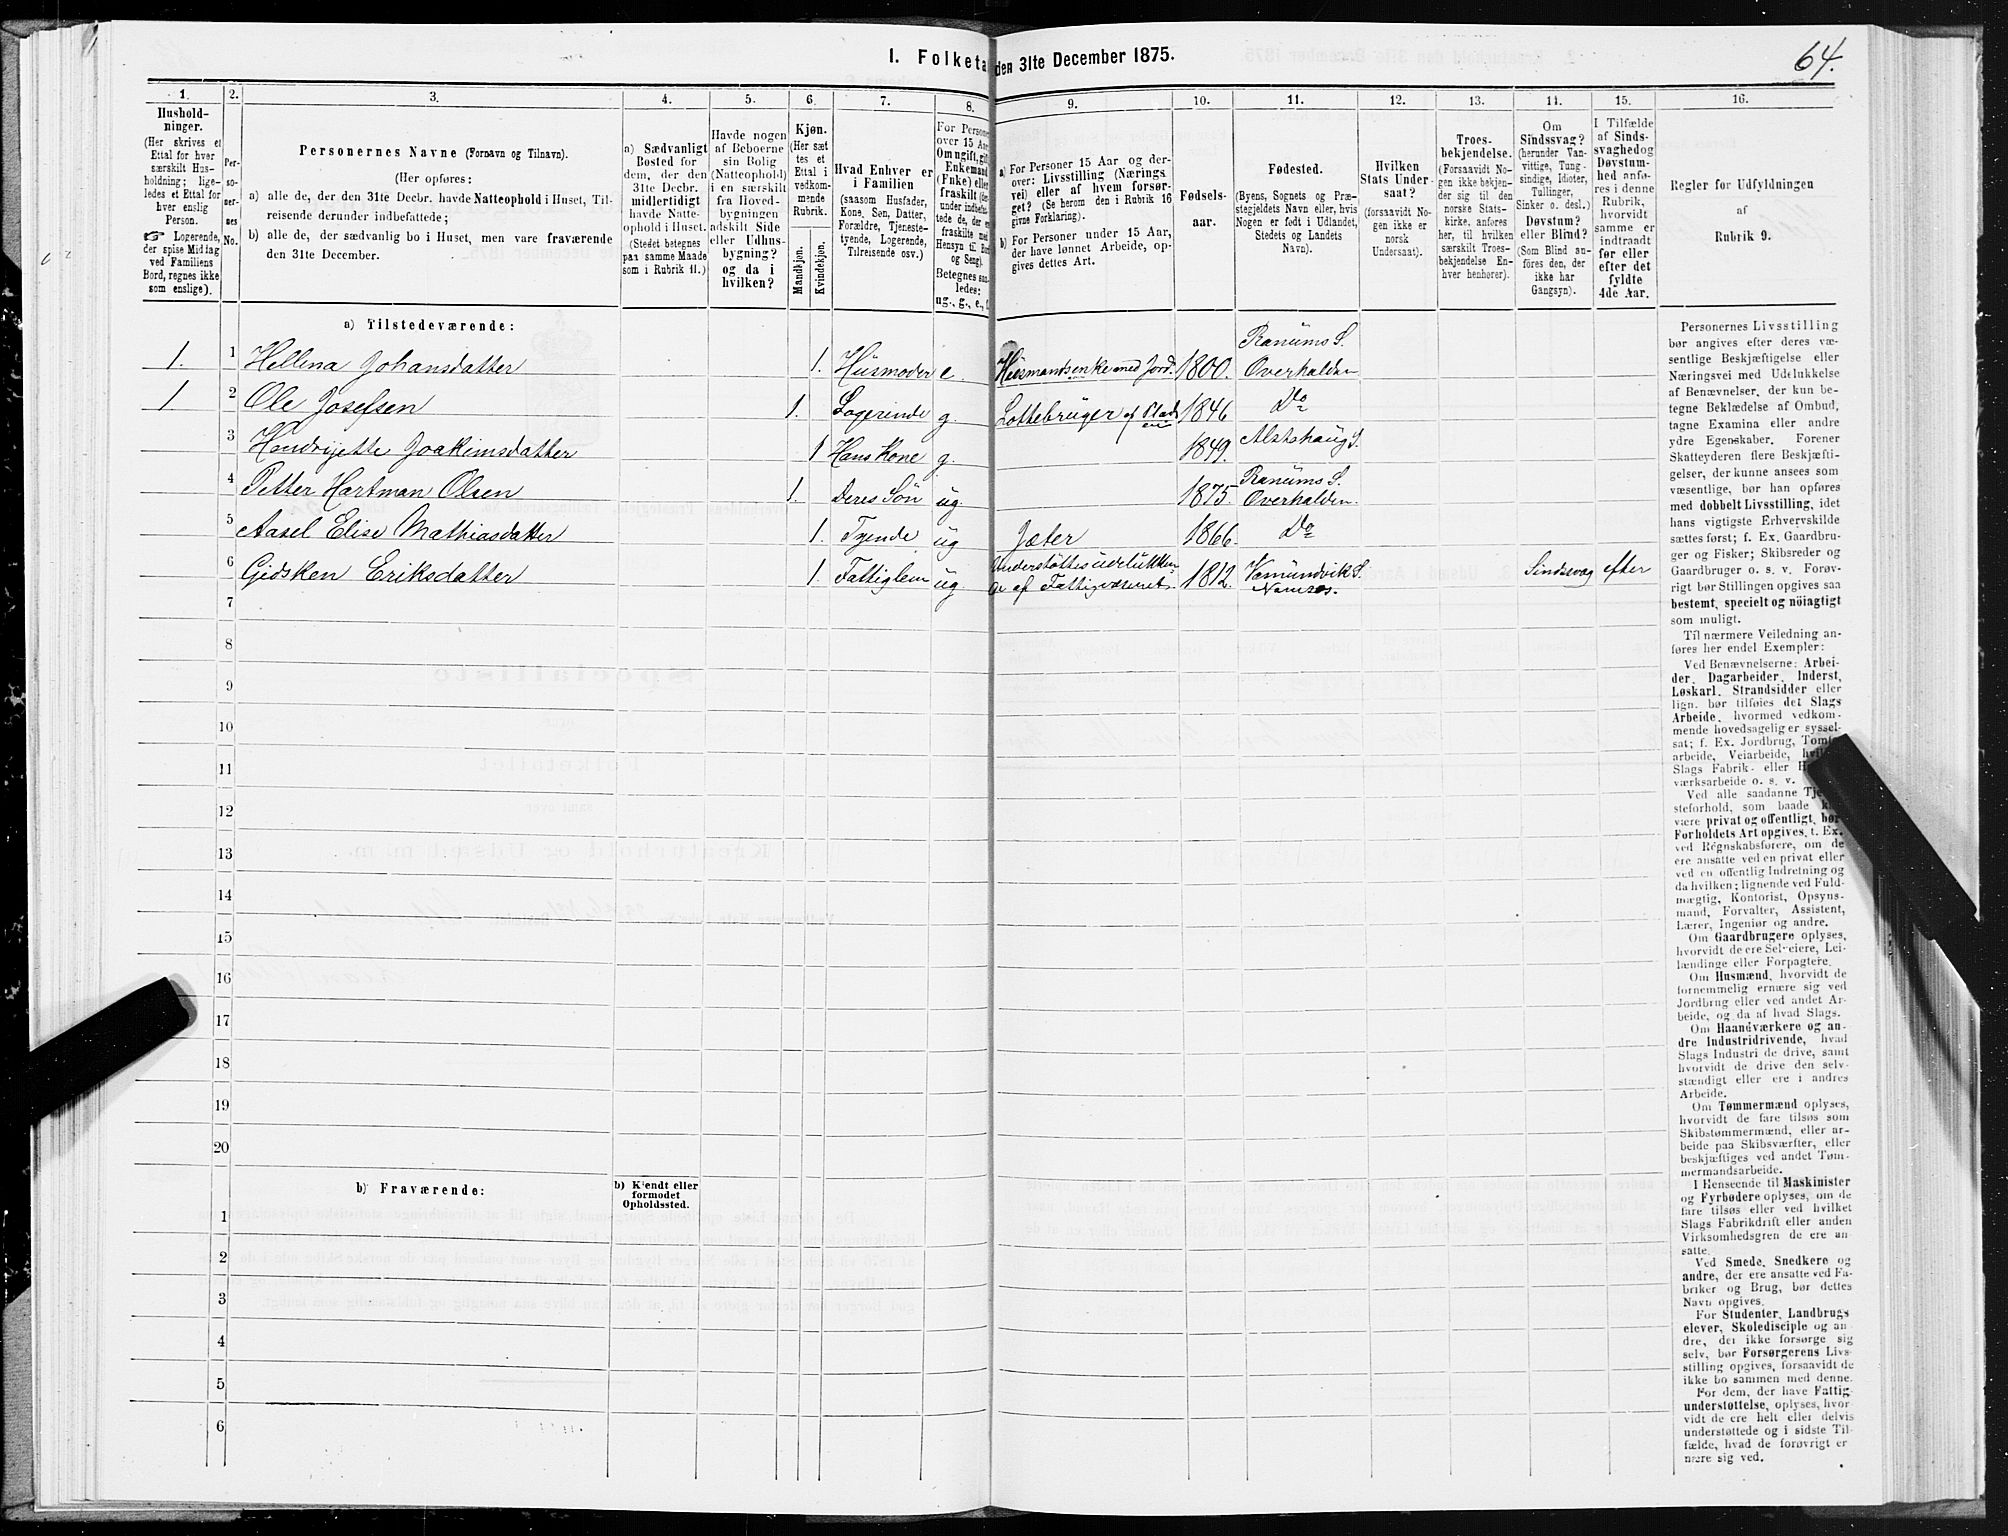 I. Folketa den 31te December 1875.
64.
1. 2. 3. 4. 5. 6. 7. 8. 9. 10. 11. 12. 13. 14. 15. 16.
Hushold-
ninger.
(Her skrives et
Ettal for hver
særskilt Hus-
holdning; lige-
ledes et Ettal for
hver enslig
Person.
☞ Logerende,
der spise Middag
ved Familiens
Bord, regnes ikke
som enslige).
Per-
so-
ner-
nes
No.
Personernes Navne (Fornavn og Tilnavn).
(Her opføres:
a) alle de, der den 31te Decbr. havde Natteophold i Huset, Til-
reisende derunder indbefattede;
b) alle de, der sædvanlig bo i Huset, men vare fraværende
den 31te December.
a) Sædvanligt
Bosted for
dem, der den
31te Decbr.
midlertidigt
havde Natte-
ophold i Huset.
(Stedet betegnes
paa samme Maade
som i Rubrik 11.)
Havde nogen
af Beboerne
sin Bolig
(Natteophold)
i en særskilt
fra Hoved-
bygningen
adskilt Side
eller Udhus-
bygning?
og da i
hvilken?
Kjøn.
(Her sæt
tes et
Ettal i
vedkom-
mende
Rubrik.
Mandkjøn.
Kvindekjøn.
Hvad Enhver er
i Familien
(saasom Husfader,
Kone, Søn, Datter,
Forældre, Tjeneste-
tyende, Logerende,
Tilreisende osv.)
For Persone
over 15 Aar
Om ugift, gif
Enkemand
(Enke) elle
fraskilt
under indbefat
tede de, der e
fraskilte med
Hensyn til Bo
og Seng).
Betegnes saa-
ledes:
ug., g., e.,
a) For Personer 15 Aar og der-
over: Livsstilling (Nærings
vei) eller af hvem forsør-
get? (Se herom den i Rubrik 16
givne Forklaring).
b) For Personer under 15 Aar,
der have lønnet Arbeide, op-
gives dettes Art.
Fødsels-
aar.
Fødested.
(Byens, Sognets og Præ-
stegjeldets Navn eller, hvis
Nogen er født i Udlandet,
Stedets og Landets
Navn).
Hvilken
Stats Under-
saat?
(forsaavidt No-
gen ikke er
norsk
Undersaat).
Troes-
bekjendelse.
(Forsaavidt No-
gen ikke bekjen-
der sig til den
norske Stats-
kirke, anføres
her, til hvilken
særskilt Troes-
bekjendelse En-
hver henhører).
Om
Sindssvag?
(herunder Van-
vittige, Tung
sindige, Idioter,
Tullinger,
Sinker o. desl.)
Døvstum?
eller Blind?
(Som Blind an-
føres den, der
ikke har
Gangsyn).
I Tilfælde
af Sinds-
svaghed og
Døvstum-
hed anfø-
res i denne
Rubrik,
hvorvidt
samme er
indtraadt
før eller
efter det
fyldte
4de Aar.
Regler for Udfyldningen
af
Rubrik 9.
a) Tilstedeværende:
1. 1 Hellena Johansdatter 1. Husmoder e. Husmandsenke med Jord. 1800. Ranums S. Overhalden
1 2 Ole Josefsen 1. Logerende g. 1846 Do
3 Hendrijette Joakimsdatter 1 Hans Kone g. 1849. Alstahaug S.
4 Petter Hartman Olsen 1. Deres Søn ug. 1875. Ranums S. Overhalden.
5 Aasel Elise Mathiasdatter 1. Tyende ug Jæter 1866. Do
6 Gidsken Eriksdatter 1. Fattiglem ug af Fattigvæsenet. 1812. Vemundvik S. Namsos. Sindsvag efter
7
8
9
10
11
12
13
14
15
16
17
18
19
20
b) Fraværende:
b) Kjendt eller
formodet
Opholdssted.
1
2
3
4
5
6
Personernes Livsstilling
bør angives efter deres væ-
sentlige Beskjæftigelse eller
Næringsvei med Udelukkelse
af Benævnelser, der kun be-
tegne Beklædelse af Ombud,
tagne Examina eller andre
ydre Egenskaber. Forener
Skatteyderen flere Beskjæfti-
gelser, der kunne ansees som
væsentlige, bør han opføres
med dobbelt Livsstilling, idet
hans vigtigste Erhvervskilde
sættes først; f. Ex. Gaardbru-
ger og Fisker; Skibsreder og
Gaardbruger o. s. v. Forøv-
rigt bør Stillingen opgives saa
bestemt, specielt og nöiagtigt
som muligt.
Til nærmere Veiledning an-
føres her endel Exempler:
Ved Benævnelserne: Arbei-
der, Dagarbeider, Inderst,
Løskarl, Strandsidder eller
lign. bør tilføies det Slags
Arbeide, hvormed vedkom-
mende hovedsagelig er syssel-
sat; f. Ex. Jordbrug, Tomte-
arbeide, Veiarbeide,
Slags Fabrik- eller
værksarbeide o. s. v.
Ved alle saadanne
steforhold, som baade
være privat og offentligt, bør
Forholdets Art opgives, t. Ex.
ved Regnskabsførere, om de
ere ansatte ved en privat eller
ved en offentlig Indretning og
da hvilken; lignende ved Fuld-
mægtig, Kontorist, Opsyns-
mand, Forvalter, Assistent,
Lærer, Ingeniør og andre.
Om Gaardbrugere oplyses,
hvorvidt de ere Selveiere, Lei-
lændinge eller Forpagtere.
Om Husmænd, hvorvidt de
fornemmelig ernære sig ved
Jordbrug eller ved andet Ar-
beide, og da af hvad Slags.
Om Haandværkere og an-
dre Industridrivende, hvad
Slags Industri de drive, samt
hvorvidt de drive den selv-
stændigt eller ere i andres
Arbeide.
Om Tømmermænd oplyses,
hvorvidt de fare tilsøs som
Skibstømmermænd, eller ar-
beide paa Skibsværfter, eller
beskjæftiges ved andet Tøm-
mermandsarbeide.
I Henseende til Maskinister
og Fyrbødere oplyses, om de
fare tilsøs eller ved hvilket
Slags Fabrikdrift eller anden
Virksomhedsgren de ere an-
satte.
Ved Smede, Snedkere og
andre, der ere ansatte ved Fa-
briker og Brug, bør dettes
Navn opgives.
For Studenter, Landbrugs
elever, Skoledisciple og an
dre, der ikke forsørge sig
selv, bør Forsørgerens Livs-
stilling opgives, forsaavidt de
ikke bo sammen med denne.
For dem, der have Fattig-
understøttelse, oplyses, hvor-
vidt de ere helt eller delvis
understøttede og i sidste Til-
fælde, hvad de forøvrigt er
nære sig ved.